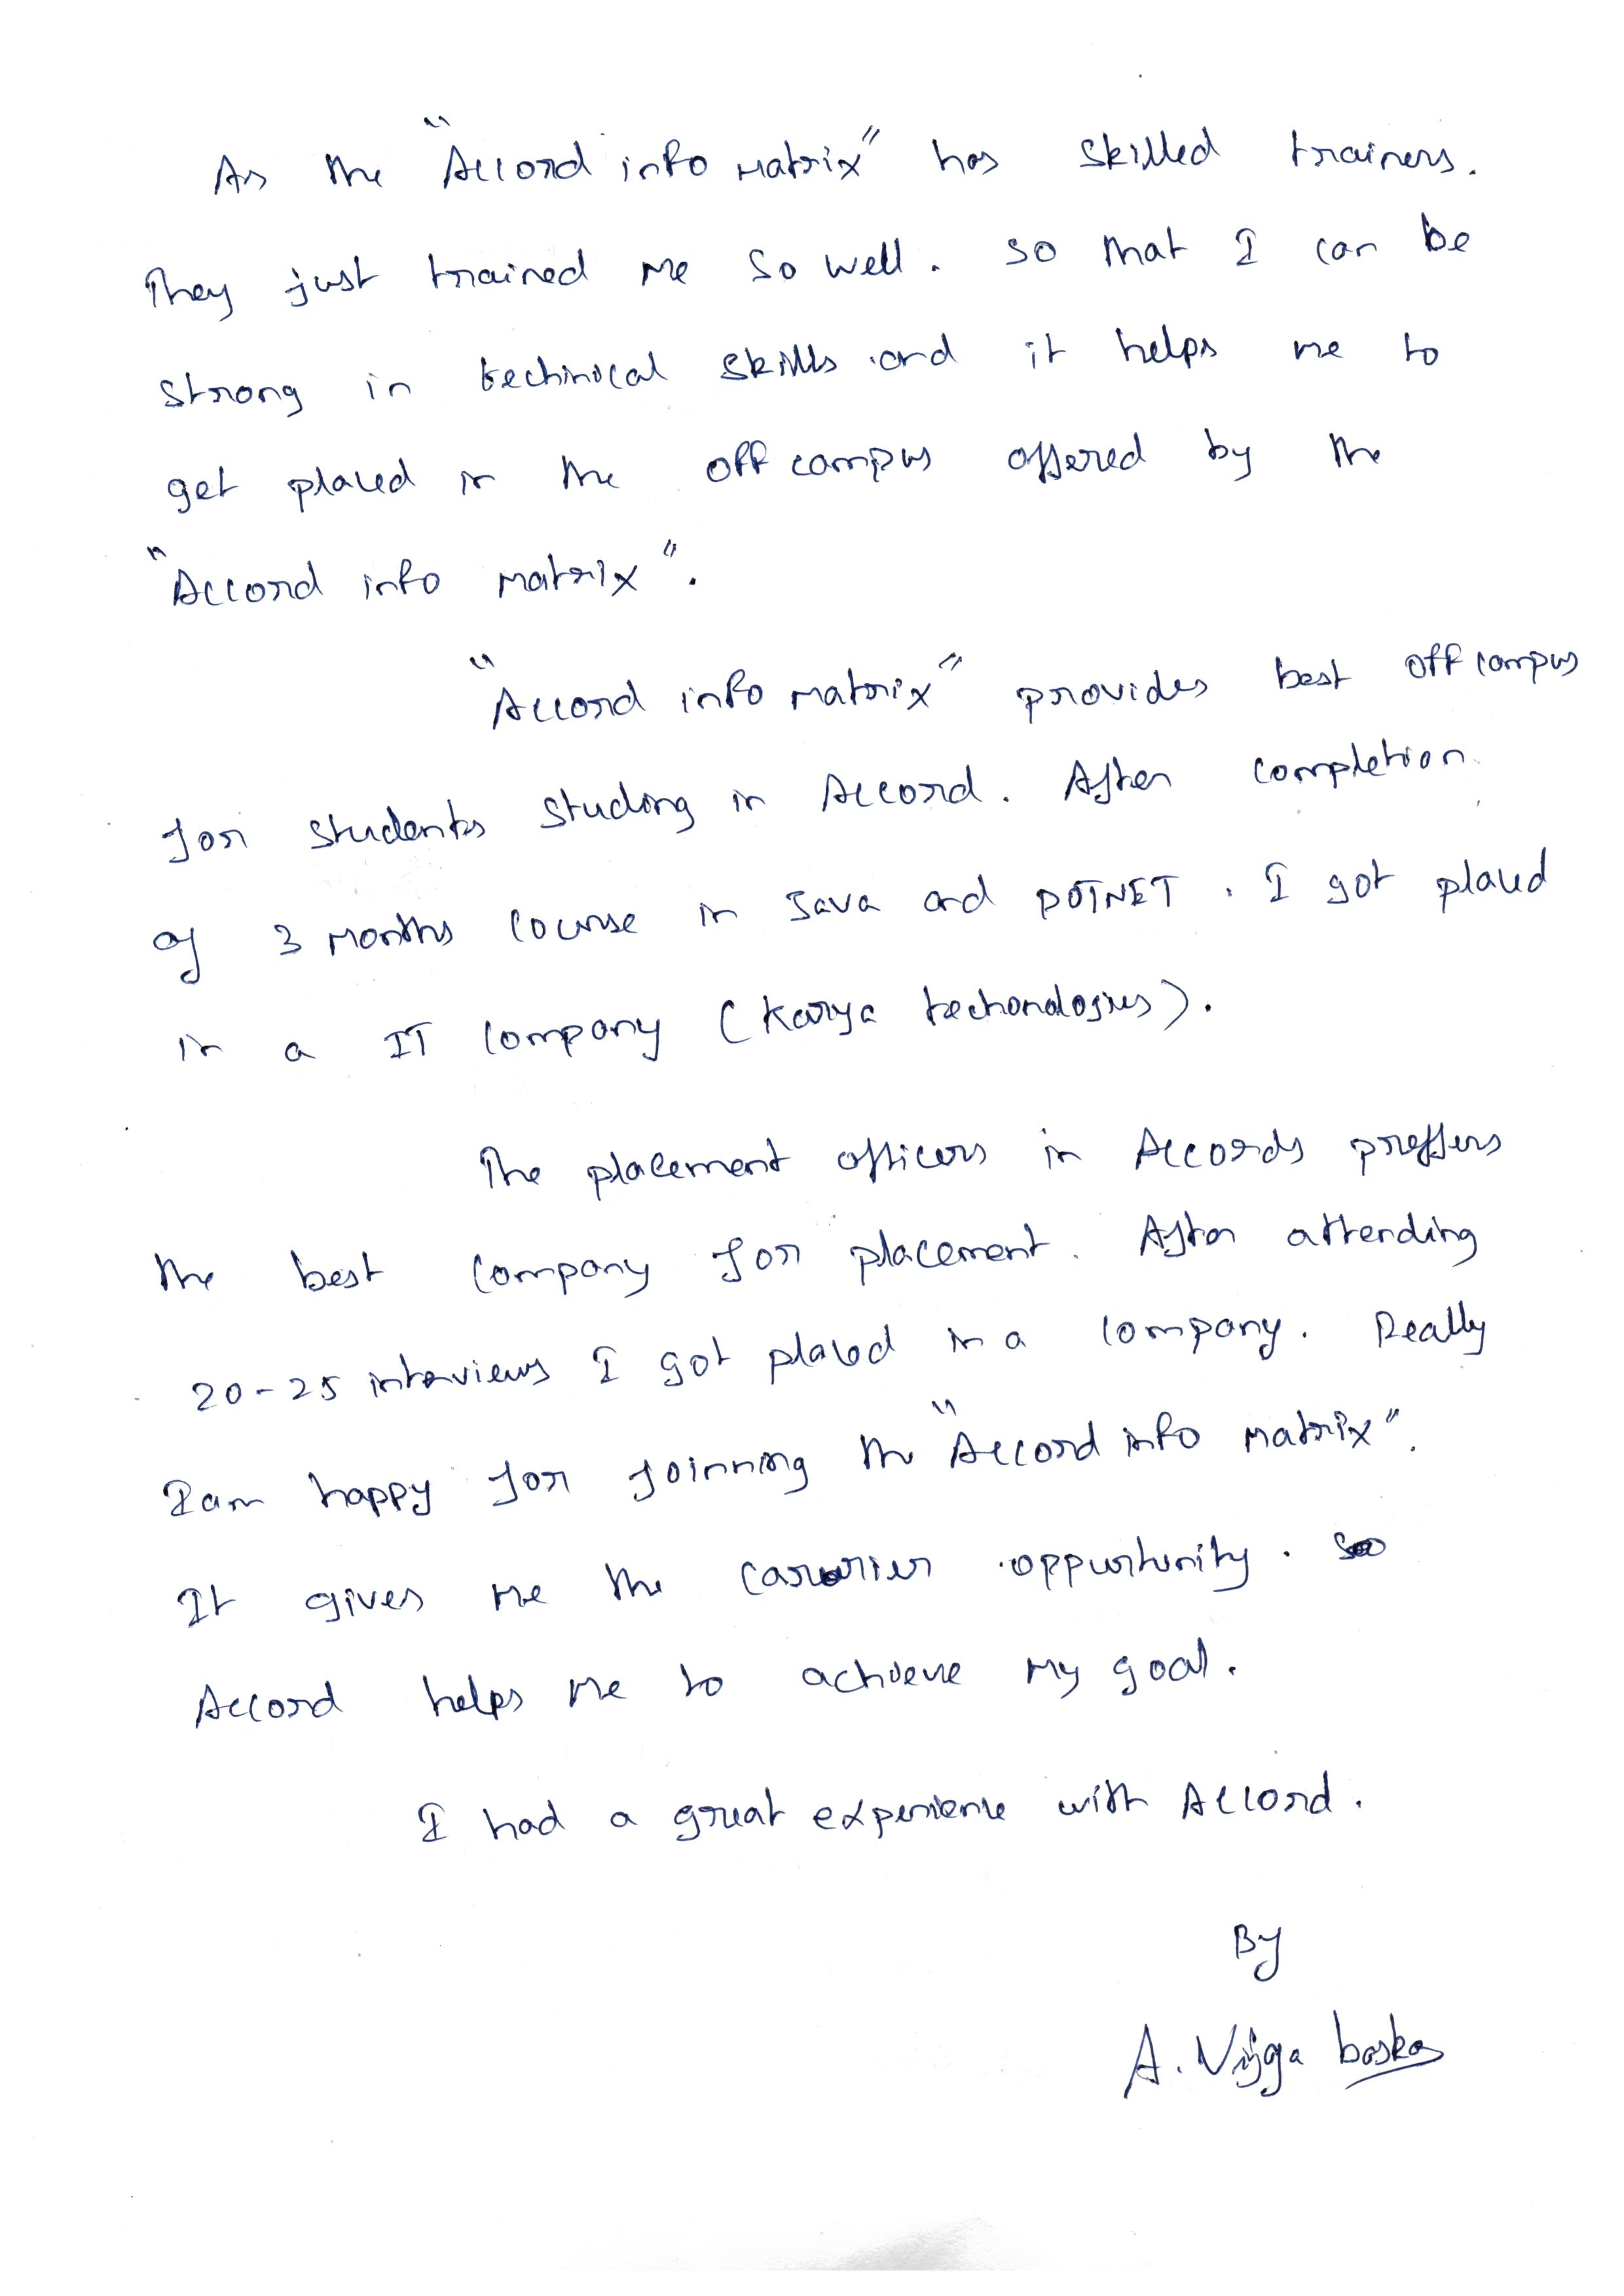 As the "Accord info Matrix" has skilled trainers.
They just trained me so well. so that I can be
strong in techinical skills and it helps me to
get placed in the off campus offered by the
"Accord info matrix".
"Accord info matrix" provides best off campus
for students studing in Accord. After completion
of 3 months course in Java and DOTNET. I got placed
in a IT company (Karya techonologies).
The placement officers in Accords preffers
the best company for placement. After attending
20-25 interviews I got placed in a company. Really
I am happy for joinning the "Accord info matrix".
It gives me the oppurtunity.
Accord helps me to achieve my goal.
I had a great experience with Accord.
By
A. Vijya baskar